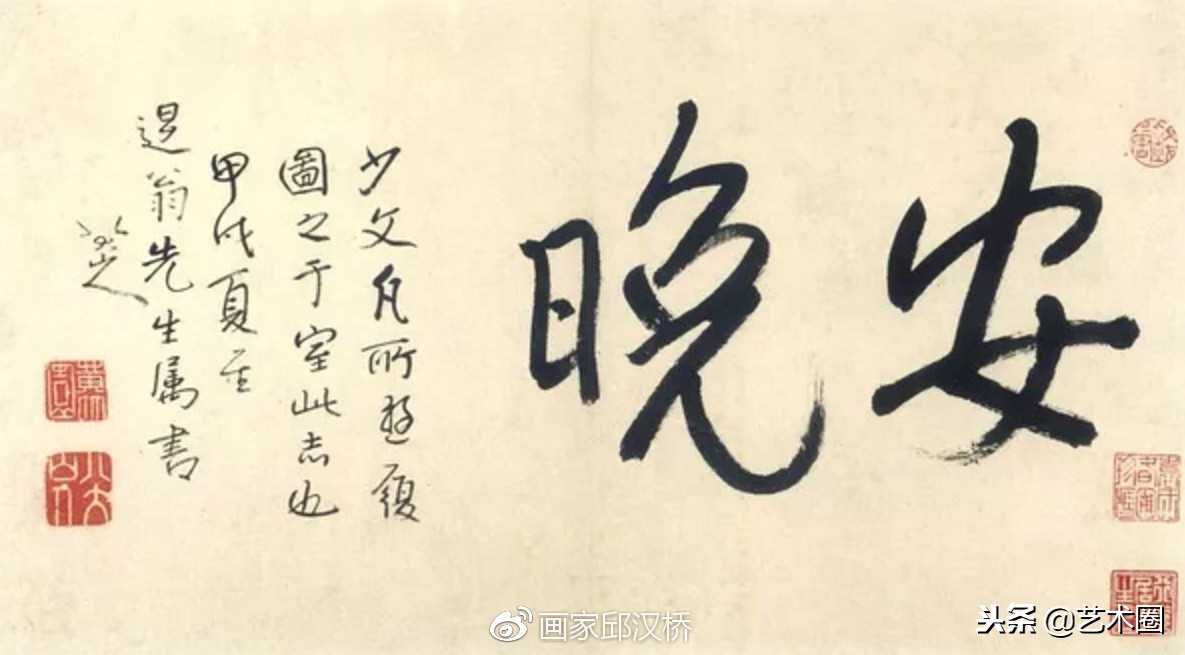 安晚
少文凡所遊履
圖之于室此志也
甲戌夏至
退翁先生属書
八大山人
画家邱汉桥
头条 @艺术圈